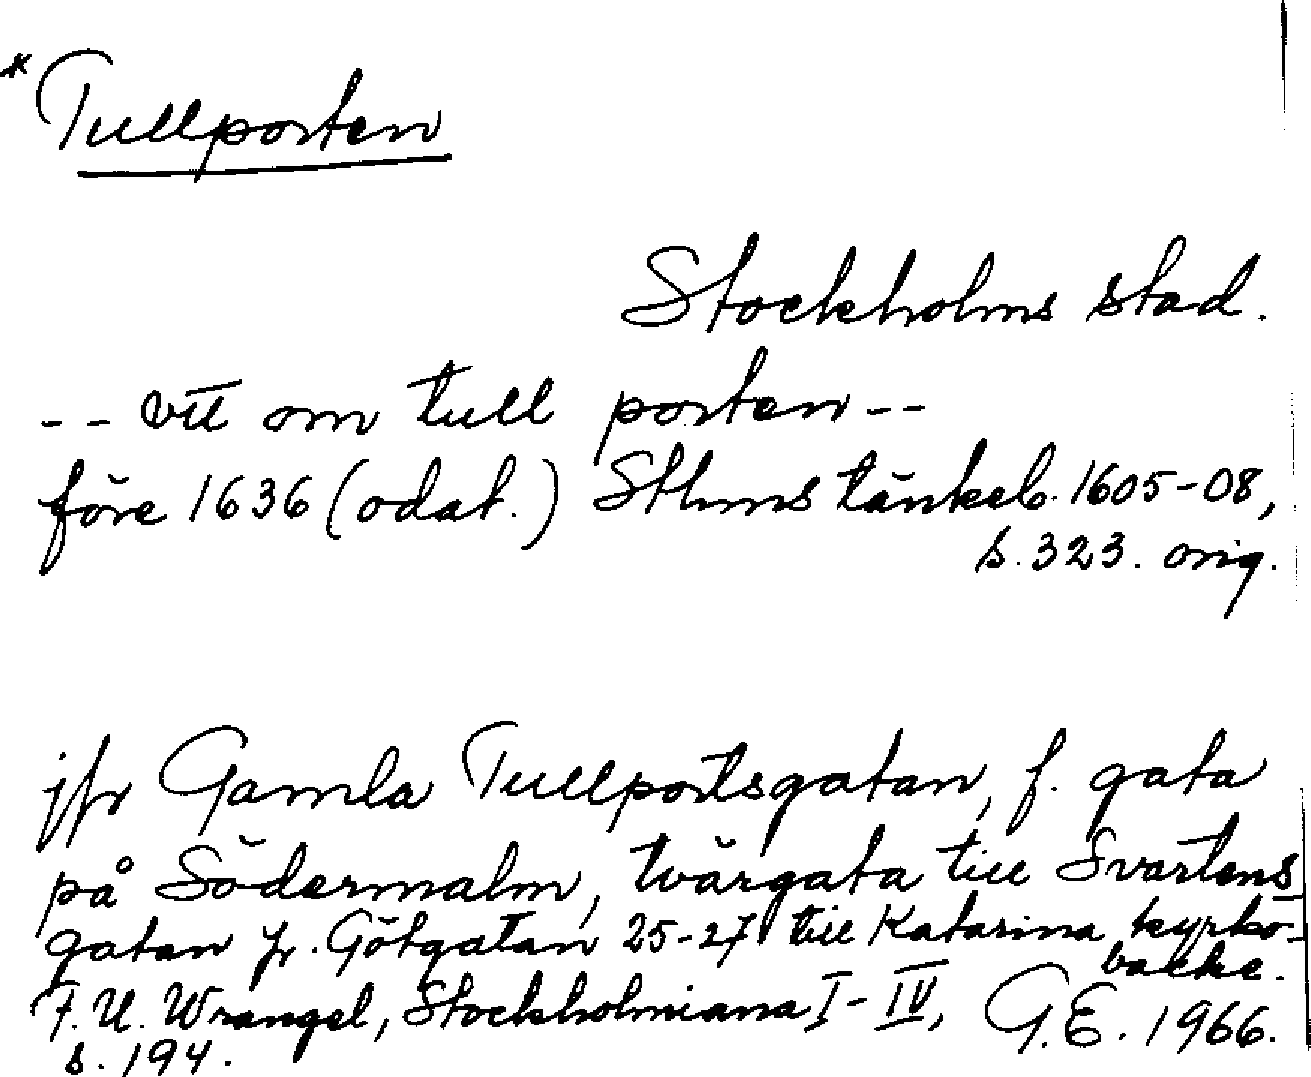 *Tullporten
Stockholms stad.
-- vtt om tull porten --
före 1636 (odat.) Sthms tänkeb. 1605-08,
s. 323. orig.
jfr Gamla Tullportsgatan, f. gata
på Södermalm, tvärgata till Svartens
gatan fr. Götgatan 25-27 till Katarina kyrko-
backe.
F. U. Wrangel, Stockholmiana I-IV, G.E. 1966.
s. 194.